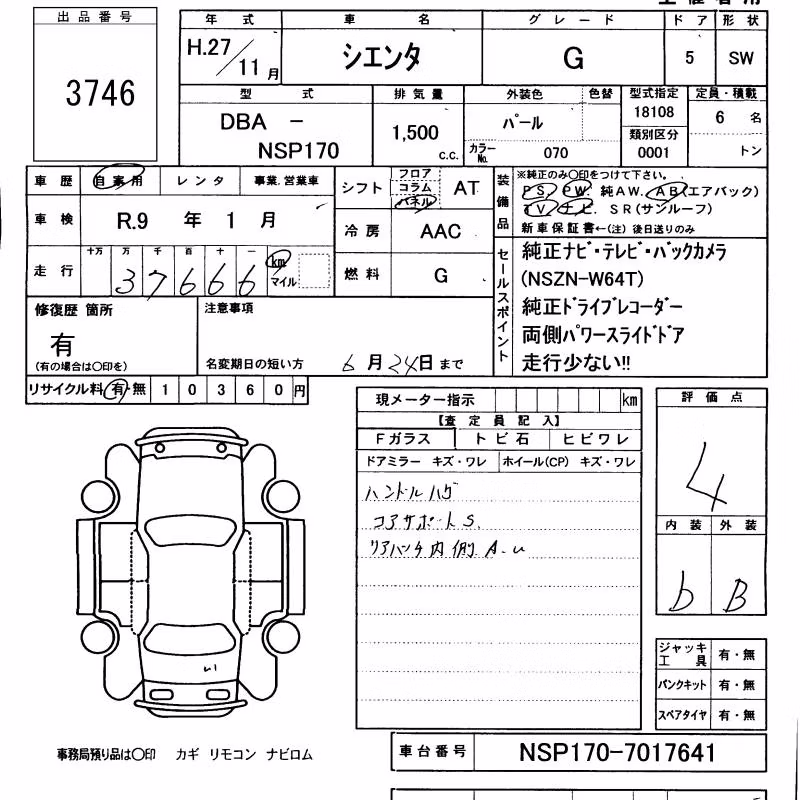 出品番号
3746
年式 車名 グレード ドア 形状
H.27/11月 シエンタ G 5 SW
型式 排気量 外装色 色替 型式指定 定員・積載
DBA - NSP170 1,500 c.c. パール 18108 6 名
カラーNo. 070 類別区分 0001 トン
車歴 自家用 レンタ 事業.営業車
シフト フロア コラム パネル AT
装備品 ※純正のみ〇印をつけて下さい。
PS. PW. 純AW. AB(エアバック)
TV. ナビ. SR(サンルーフ)
新車保証書←(注) 後日送りのみ
車検 R.9 年 1 月
冷房 AAC
走行 十万 万 千 百 十 一
37666 km マイル
燃料 G
セールスポイント
純正ナビ・テレビ・バックカメラ
(NSZN-W64T)
純正ドライブレコーダー
両側パワースライドドア
走行少ない!!
修復歴 箇所
有
(有の場合は〇印を)
注意事項
名変期日の短い方 6月24日まで
リサイクル料 有・無 10360円
現メーター指示 km
【査定員記入】
Fガラス トビ石 ヒビワレ
ドアミラー キズ・ワレ ホイール(CP) キズ・ワレ
ハンドルハゲ
コアサポートS.
リアパンチ内側 A.u
評価点
4
内装 外装
b B
ジャッキ工具 有・無
パンクキット 有・無
スペアタイヤ 有・無
事務局預り品は〇印 カギ リモコン ナビロム
車台番号 NSP170-7017641